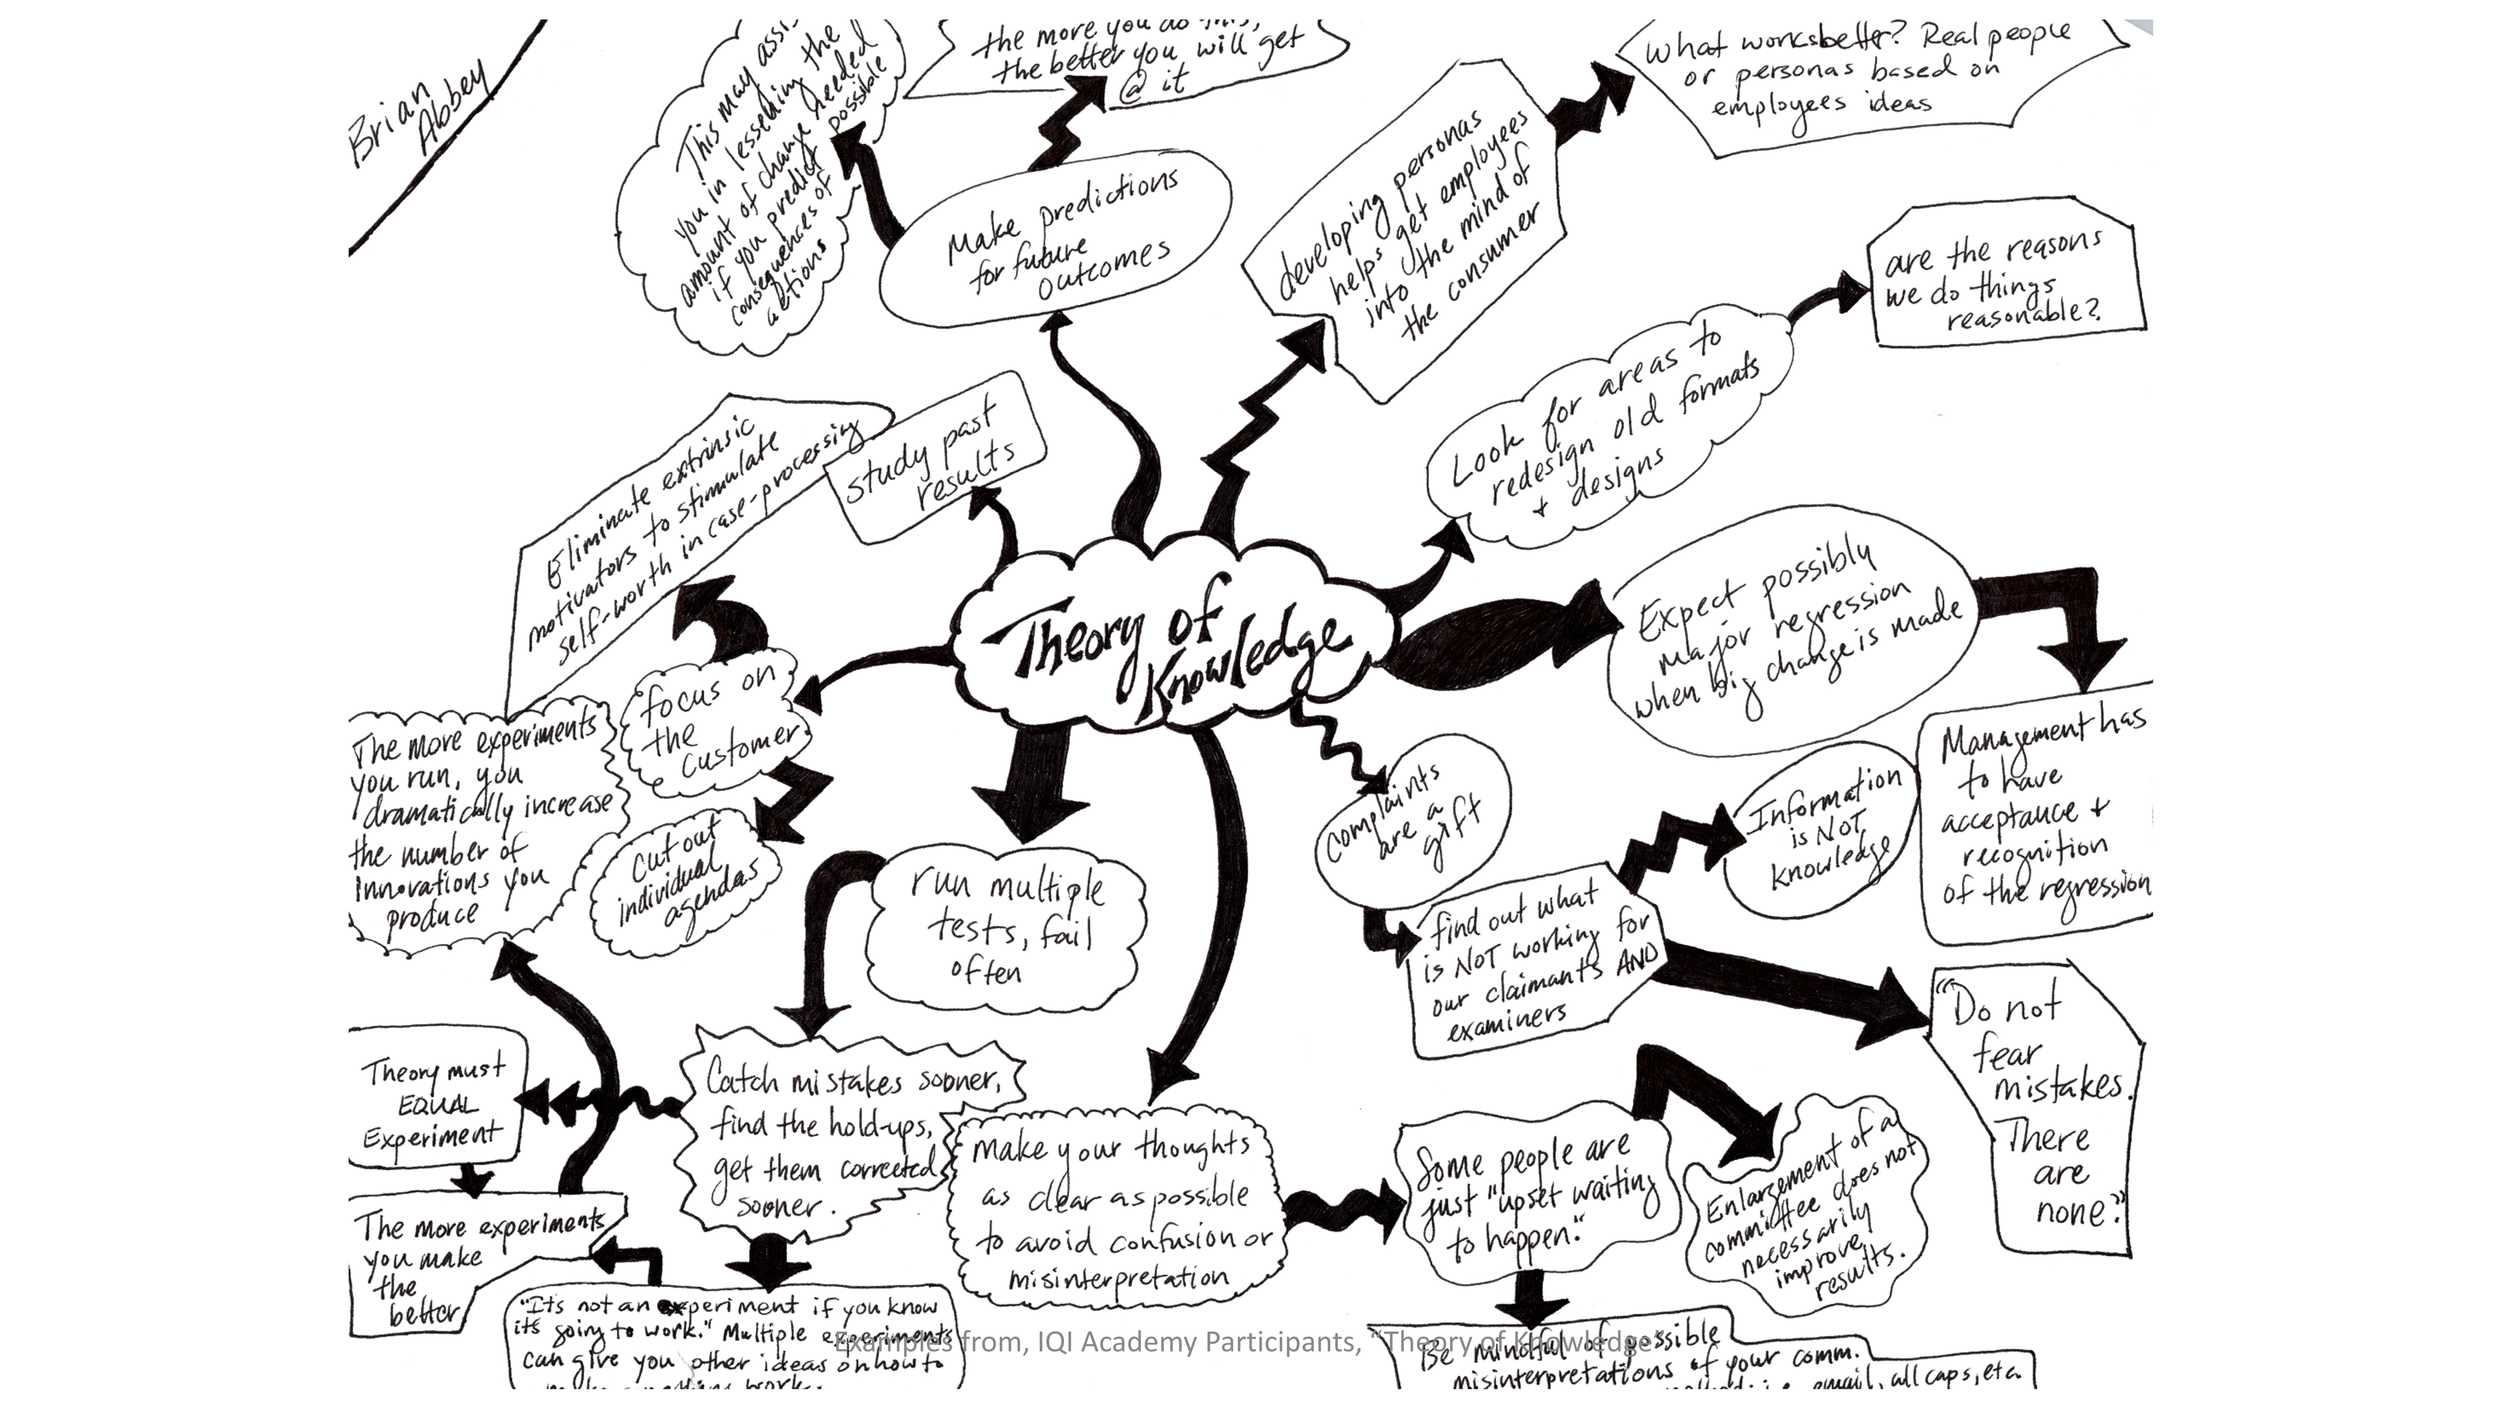 Brian
Abbey
This may assis
you in lessening the
amount of change needed
if you predict possible
consequences of
actions
the more you do this,
the better you will get
@ it
Make predictions
for future
outcomes
developing personas
helps get employees
into the mind of
the consumer
What works better? Real people
or personas based on
employees ideas
Look for areas to
redesign old formats
+ designs
are the reasons
we do things
reasonable?
study past
results
Eliminate extrinsic
motivators to stimulate
self-worth in case-processing
Theory of
Knowledge
Expect possibly
major regression
when big change is made
Management has
to have
acceptance +
recognition
of the regression
focus on
the
customer
Cut out
individual
agendas
The more experiments
you run, you
dramatically increase
the number of
innovations you
produce
run multiple
tests, fail
often
complaints
are a
gift
find out what
is NOT working for
our claimants AND
examiners
Information
is NOT
knowledge
"Do not
fear
mistakes.
There
are
none."
Theory must
EQUAL
Experiment
Catch mistakes sooner,
find the hold-ups,
get them corrected
sooner.
make your thoughts
as clear as possible
to avoid confusion or
misinterpretation
Some people are
just "upset waiting
to happen."
Enlargement of a
committee does not
necessarily
improve
results.
The more experiments
you make
the
better
"It's not an experiment if you know
it's going to work." Multiple experiments
can give you other ideas on how to
make something work.
Be mindful of possible
misinterpretations of your comm.
email, all caps, etc.
Examples from, IQI Academy Participants, "Theory of Knowledge"